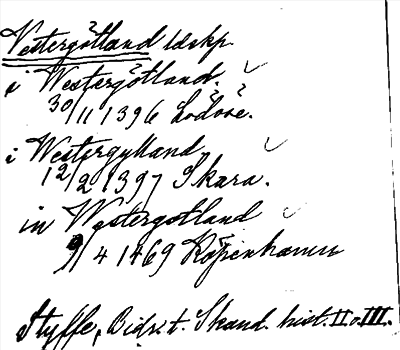 Vestergötland ldskp.
i Westergötland. ✓
30/11 1396 Lodöse.
i Westergylland ✓
12/2 1397 Skara.
in Westergotland ✓
9/4 1469 Köpenhamn
Styffe, Bidr. t. Skand. hist. II o. III.